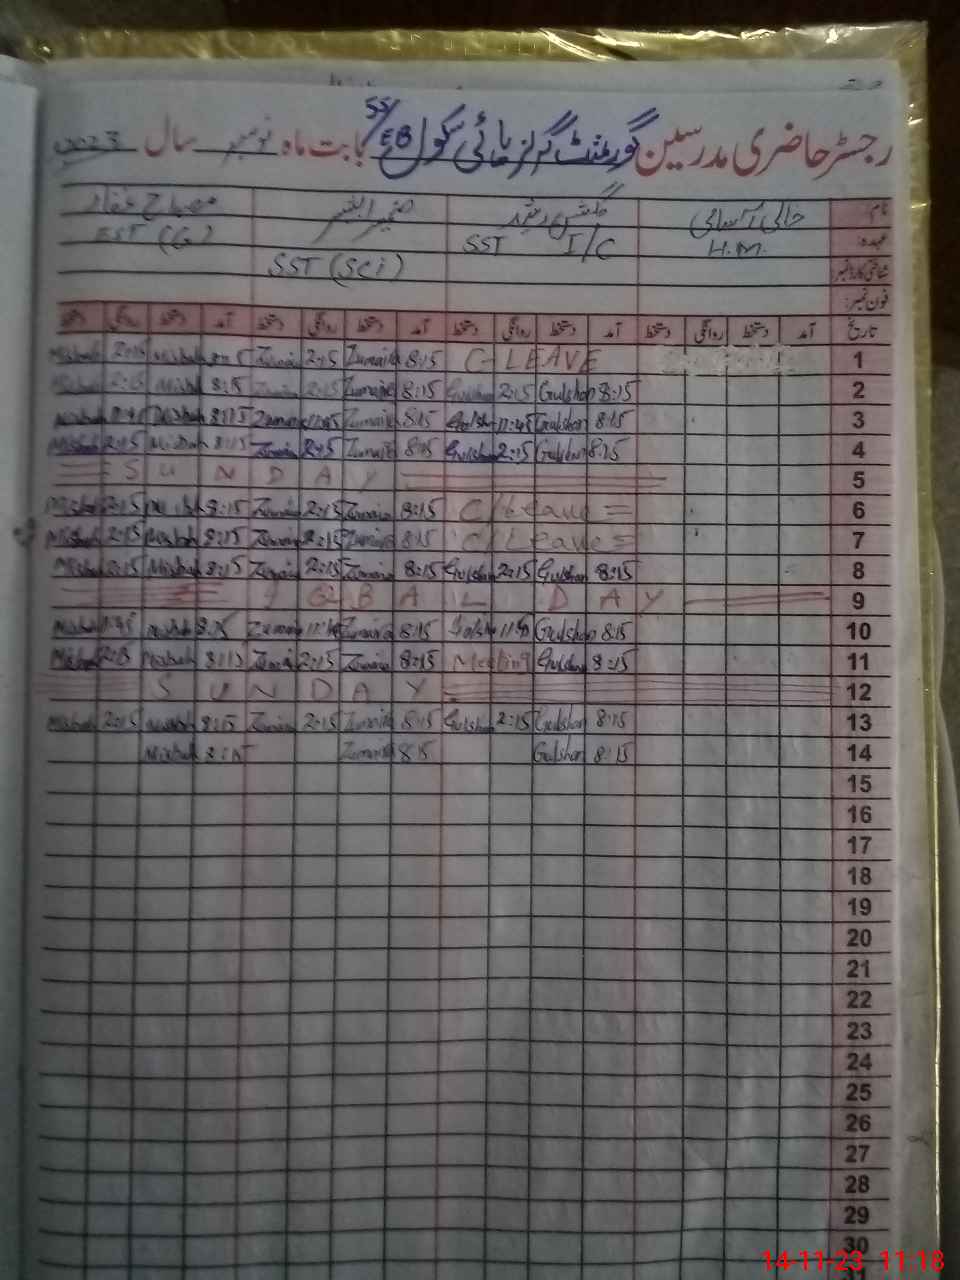 رجسٹر حاضری مدرسین گورنمنٹ گرلز ہائی سکول 55/EB بابت ماہ نومبر سال 2023
نام: خالی آسامی گلشن رشید ضمیرا مصباح غفار
عہدہ: H.M. SST I/C SST (Sci) EST (G)
شناختی کارڈ نمبر:
فون نمبر:
تاریخ آمد دستخط روانگی دستخط آمد دستخط روانگی دستخط آمد دستخط روانگی دستخط آمد دستخط روانگی دستخط
Misbah 2:15 Misbah 8:15 Zumaira 2:15 Zumaira 8:15 C-LEAVE 1
Misbah 2:15 Misbah 8:15 Zumaira 2:15 Zumaira 8:15 Gulshan 2:15 Gulshan 8:15 2
Misbah 11:45 Misbah 8:15 Zumaira 11:45 Zumaira 8:15 Gulshan 11:45 Gulshan 8:15 3
Misbah 2:15 Misbah 8:15 Zumaira 2:15 Zumaira 8:15 Gulshan 2:15 Gulshan 8:15 4
SUNDAY 5
Misbah 2:15 Misbah 8:15 Zumaira 2:15 Zumaira 8:15 C/Leave = 6
Misbah 2:15 Misbah 8:15 Zumaira 2:15 Zumaira 8:15 C/Leave = 7
Misbah 2:15 Misbah 8:15 Zumaira 2:15 Zumaira 8:15 Gulshan 2:15 Gulshan 8:15 8
IQBAL DAY 9
Misbah 11:45 Misbah 8:15 Zumaira Zumaira 8:15 Gulshan Gulshan 8:15 10
Misbah 2:15 Misbah 8:15 Zumaira 2:15 Zumaira 8:15 Meeting Gulshan 8:15 11
SUNDAY 12
Misbah 2:15 Misbah 8:15 Zumaira 2:15 Zumaira 8:15 Gulshan 2:15 Gulshan 8:15 13
Misbah 8:15 Zumaira 8:15 Gulshan 8:15 14
15
16
17
18
19
20
21
22
23
24
25
26
27
28
29
30
14-11-23 11:18